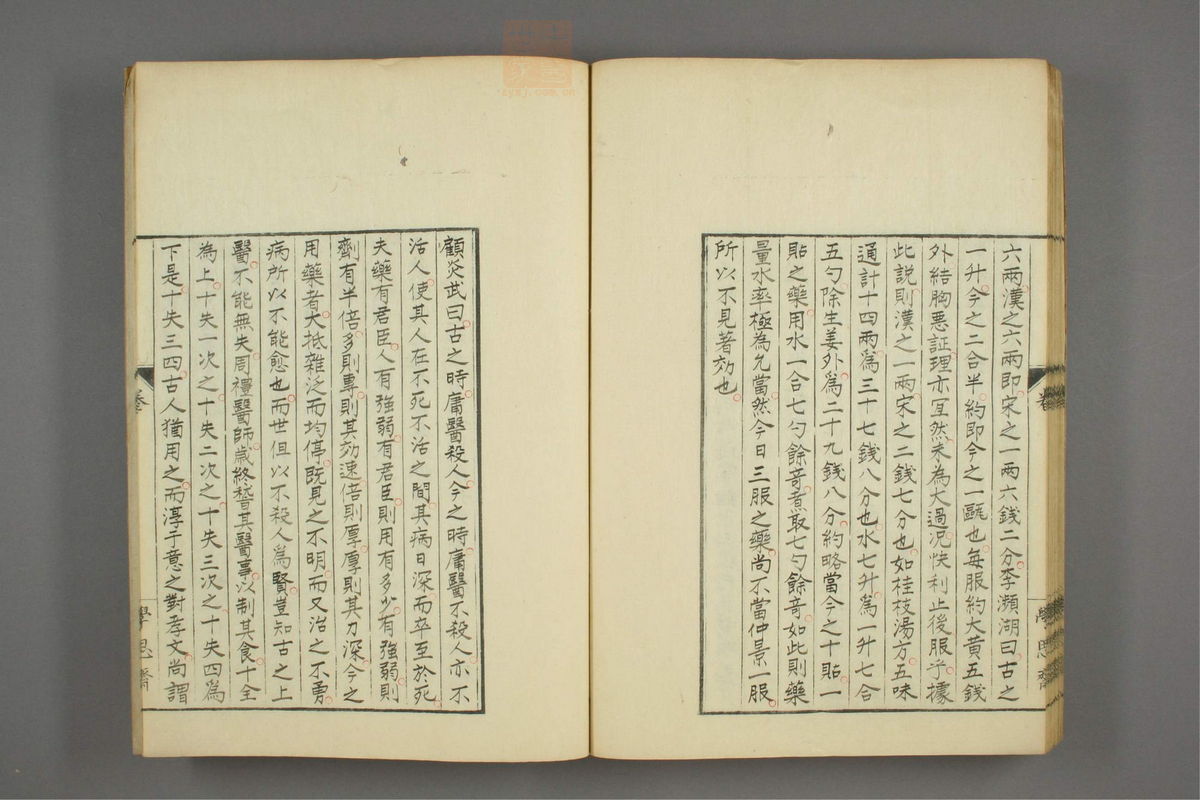 六兩漢之六兩即宋之一兩六錢二分李瀕湖曰古之
一升今之二合半約即今之一甌也每服約大黄五錢
外結胸悪証理亦宜然未為大過况快利止後服乎據
此説則漢之一兩宋之二錢七分也如桂枝湯方五味
通計十四兩爲三十七錢八分也水七升爲一升七合
五勺除生姜外爲二十九錢八分約略當今之十貼一
貼之藥用水一合七勺餘竒煮取七勺餘竒如此則藥
量水率極為允當然今日三服之藥尚不當仲景一服
所以不見著効也
顧炎武曰古之時庸醫殺人今之時庸醫不殺人亦不
活人使其人在不死不活之間其病日深而卒至於死
夫藥有君臣人有強弱有君臣則用有多少有強弱則
劑有半倍多則專專則其効速倍則厚厚則其力深今之
用藥者大抵雜泛而均停既見之不明而又治之不勇
病所以不能愈也而世但以不殺人爲賢豈知古之上
醫不能無失周禮醫師歳終稽其醫事以制其食十全
為上十失一次之十失二次之十失三次之十失四爲
下是十失三四古人猶用之而淳于意之對孝文尚謂
學思齋